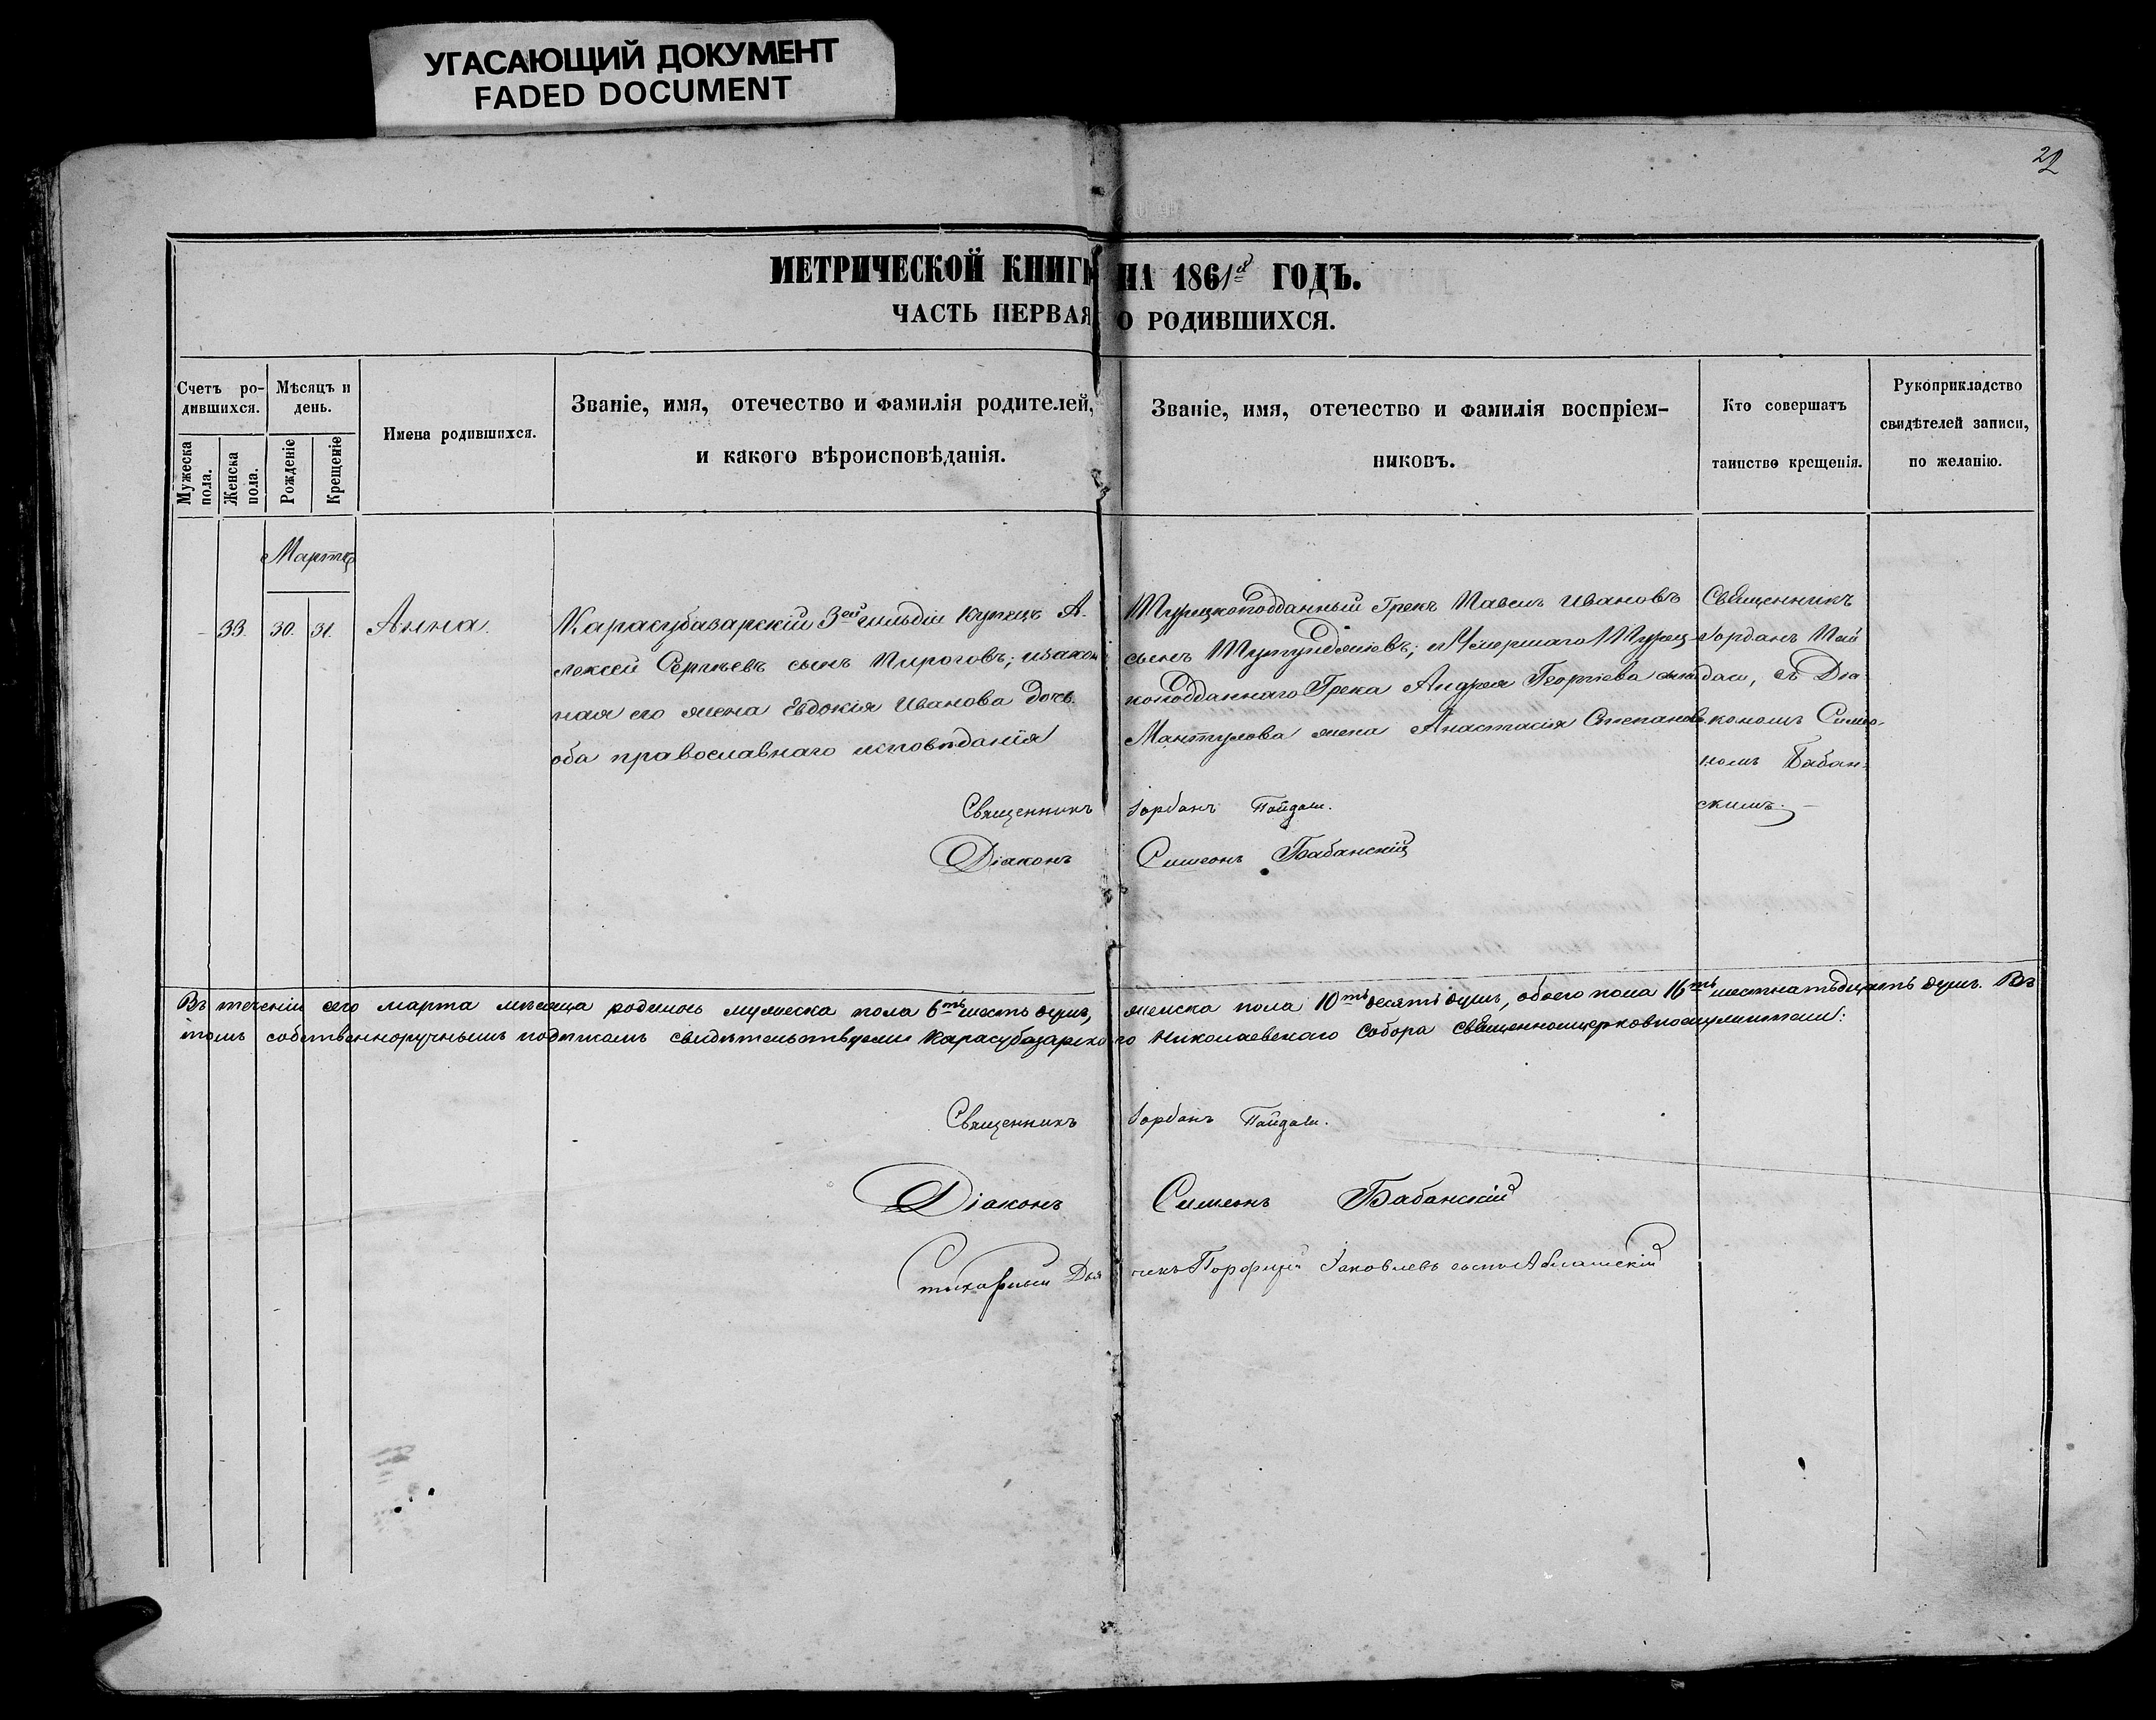 УГАСАЮЩИЙ ДОКУМЕНТ
FADED DOCUMENT
22
МЕТРИЧЕСКОЙ КНИГИ НА 1861й ГОДЪ.
ЧАСТЬ ПЕРВАЯ О РОДИВШИХСЯ.
Счетъ ро-
дившихся.
Мужеска
пола.
Женска
пола.
Мѣсяцъ и
день.
Рожденіе
Крещеніе
Имена родившихся.
Званіе, имя, отечество и фамилія родителей,
и какого вѣроисповѣданія.
Званіе, имя, отечество и фамилія воспріем-
никовъ.
Кто совершатъ
таинство крещенія.
Рукоприкладство
свидѣтелей записи,
по желанію.
Марта
33. 30. 31. Анна.
Карасубазарскій 3ей гильдіи купецъ А-
лексей Сергѣевъ сынъ Пироговъ; и закон
ная его жена Евдокія Иванова дочь.
оба православнаго исповѣданія
Турецкоподданный Грекъ Павелъ Ивановъ
сынъ; и Умершаго Турец
коподданнаго Грека Андрея Георгіева сына
Мантулова жена Анастасія Степанов
Священникъ
Іорданъ Пай
даши, съ Діа-
кономъ Симео-
номъ Бабан-
скимъ.
Священникъ Іорданъ Пайдаши.
Діаконъ Симеонъ Бабанскій
Въ теченіи сего марта мѣсяца родилось мужеска пола 6ть шесть душъ, женска пола 10ть десять душъ, обоего пола 16ть шестнатьдцать душъ. Въ
томъ собственноручнымъ подписомъ свидѣтельствуемъ Карасубазарскаго Николаевскаго Собора священноцерковнослужители:
Священникъ Іорданъ Пайдаши.
Діаконъ Симеонъ Бабанскій
Стихарный Дьячекъ Порфирій Іаковлевъ сынъ